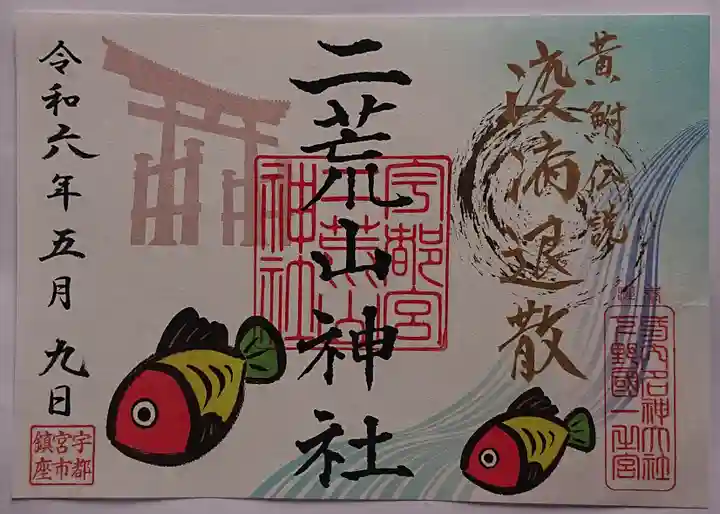 黄鮒伝説
疫病退散
二荒山神社
宇都宮
二荒山
神社
令和六年五月九日
下野國一之宮
宇都
宮市
鎮座